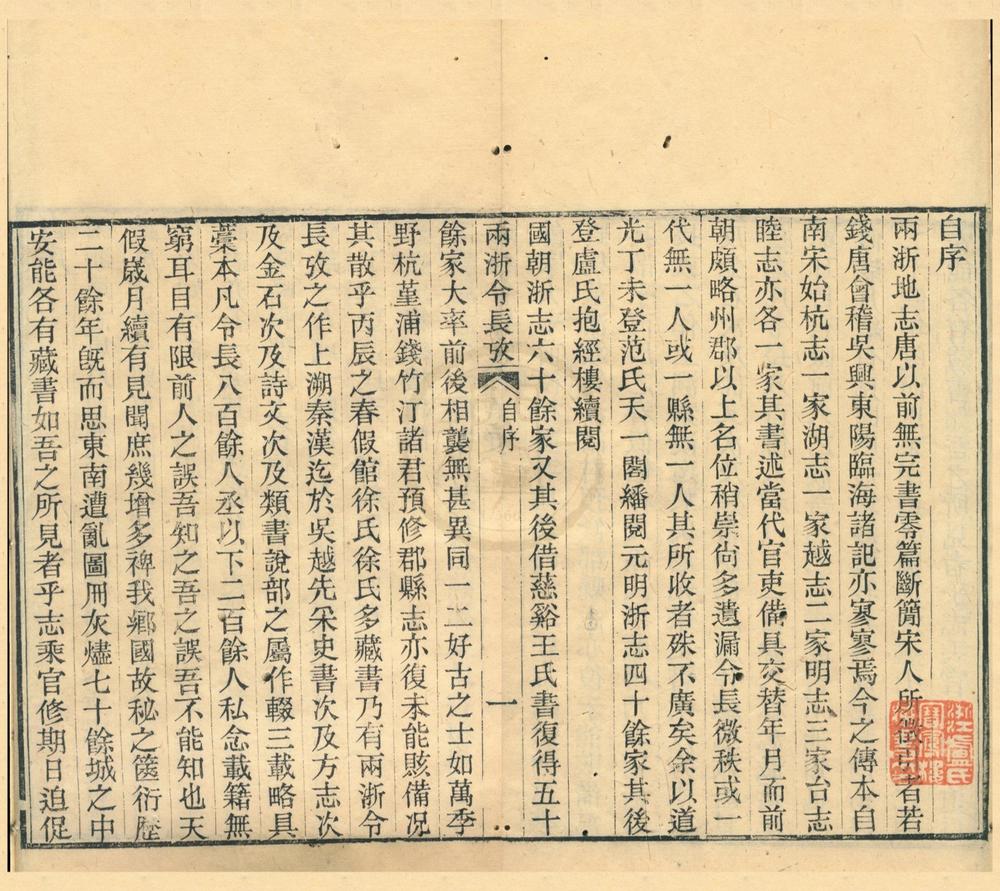 自序
兩浙地志唐以前無完書零篇斷簡宋人所徵引者若
錢唐會稽吳興東陽臨海諸記亦寥寥焉今之傳本自
南宋始杭志一家湖志一家越志二家明志三家台志
睦志亦各一家其書述當代官吏備具交替年月而前
朝頗略州郡以上名位稍崇尙多遺漏令長微秩或一
代無一人或一縣無一人其所收者殊不廣矣余以道
光丁未登范氏天一閣繙閱元明浙志四十餘家其後
登盧氏抱經樓續閱
國朝浙志六十餘家又其後借慈谿王氏書復得五十
兩浙令長攷 自序 一
餘家大率前後相襲無甚異同一二好古之士如萬季
野杭堇浦錢竹汀諸君預修郡縣志亦復未能賅備況
其散乎丙辰之春假館徐氏徐氏多藏書乃有兩浙令
長攷之作上溯秦漢迄於吳越先采史書次及方志次
及金石次及詩文次及類書說部之屬作輟三載略具
藁本凡令長八百餘人丞以下二百餘人私念載籍無
窮耳目有限前人之誤吾知之吾之誤吾不能知也天
假歲月續有見聞庶幾增多裨我鄉國故秘之篋衍歷
二十餘年旣而思東南遭亂圖冊灰燼七十餘城之中
安能各有藏書如吾之所見者乎志乘官修期日迫促